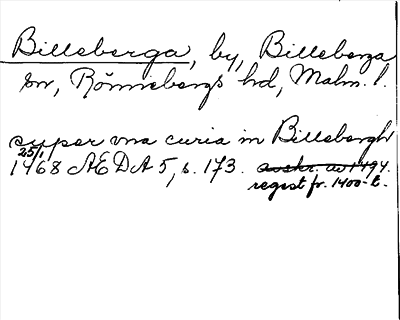 Billeberga, by, Billeberga
sn, Rönnebergs hd, Malm. l.
super vna curia in Billebergh
25/1
1468 ÆDA 5, s. 173. avskr. av 1494.
regest fr. 1400-t.